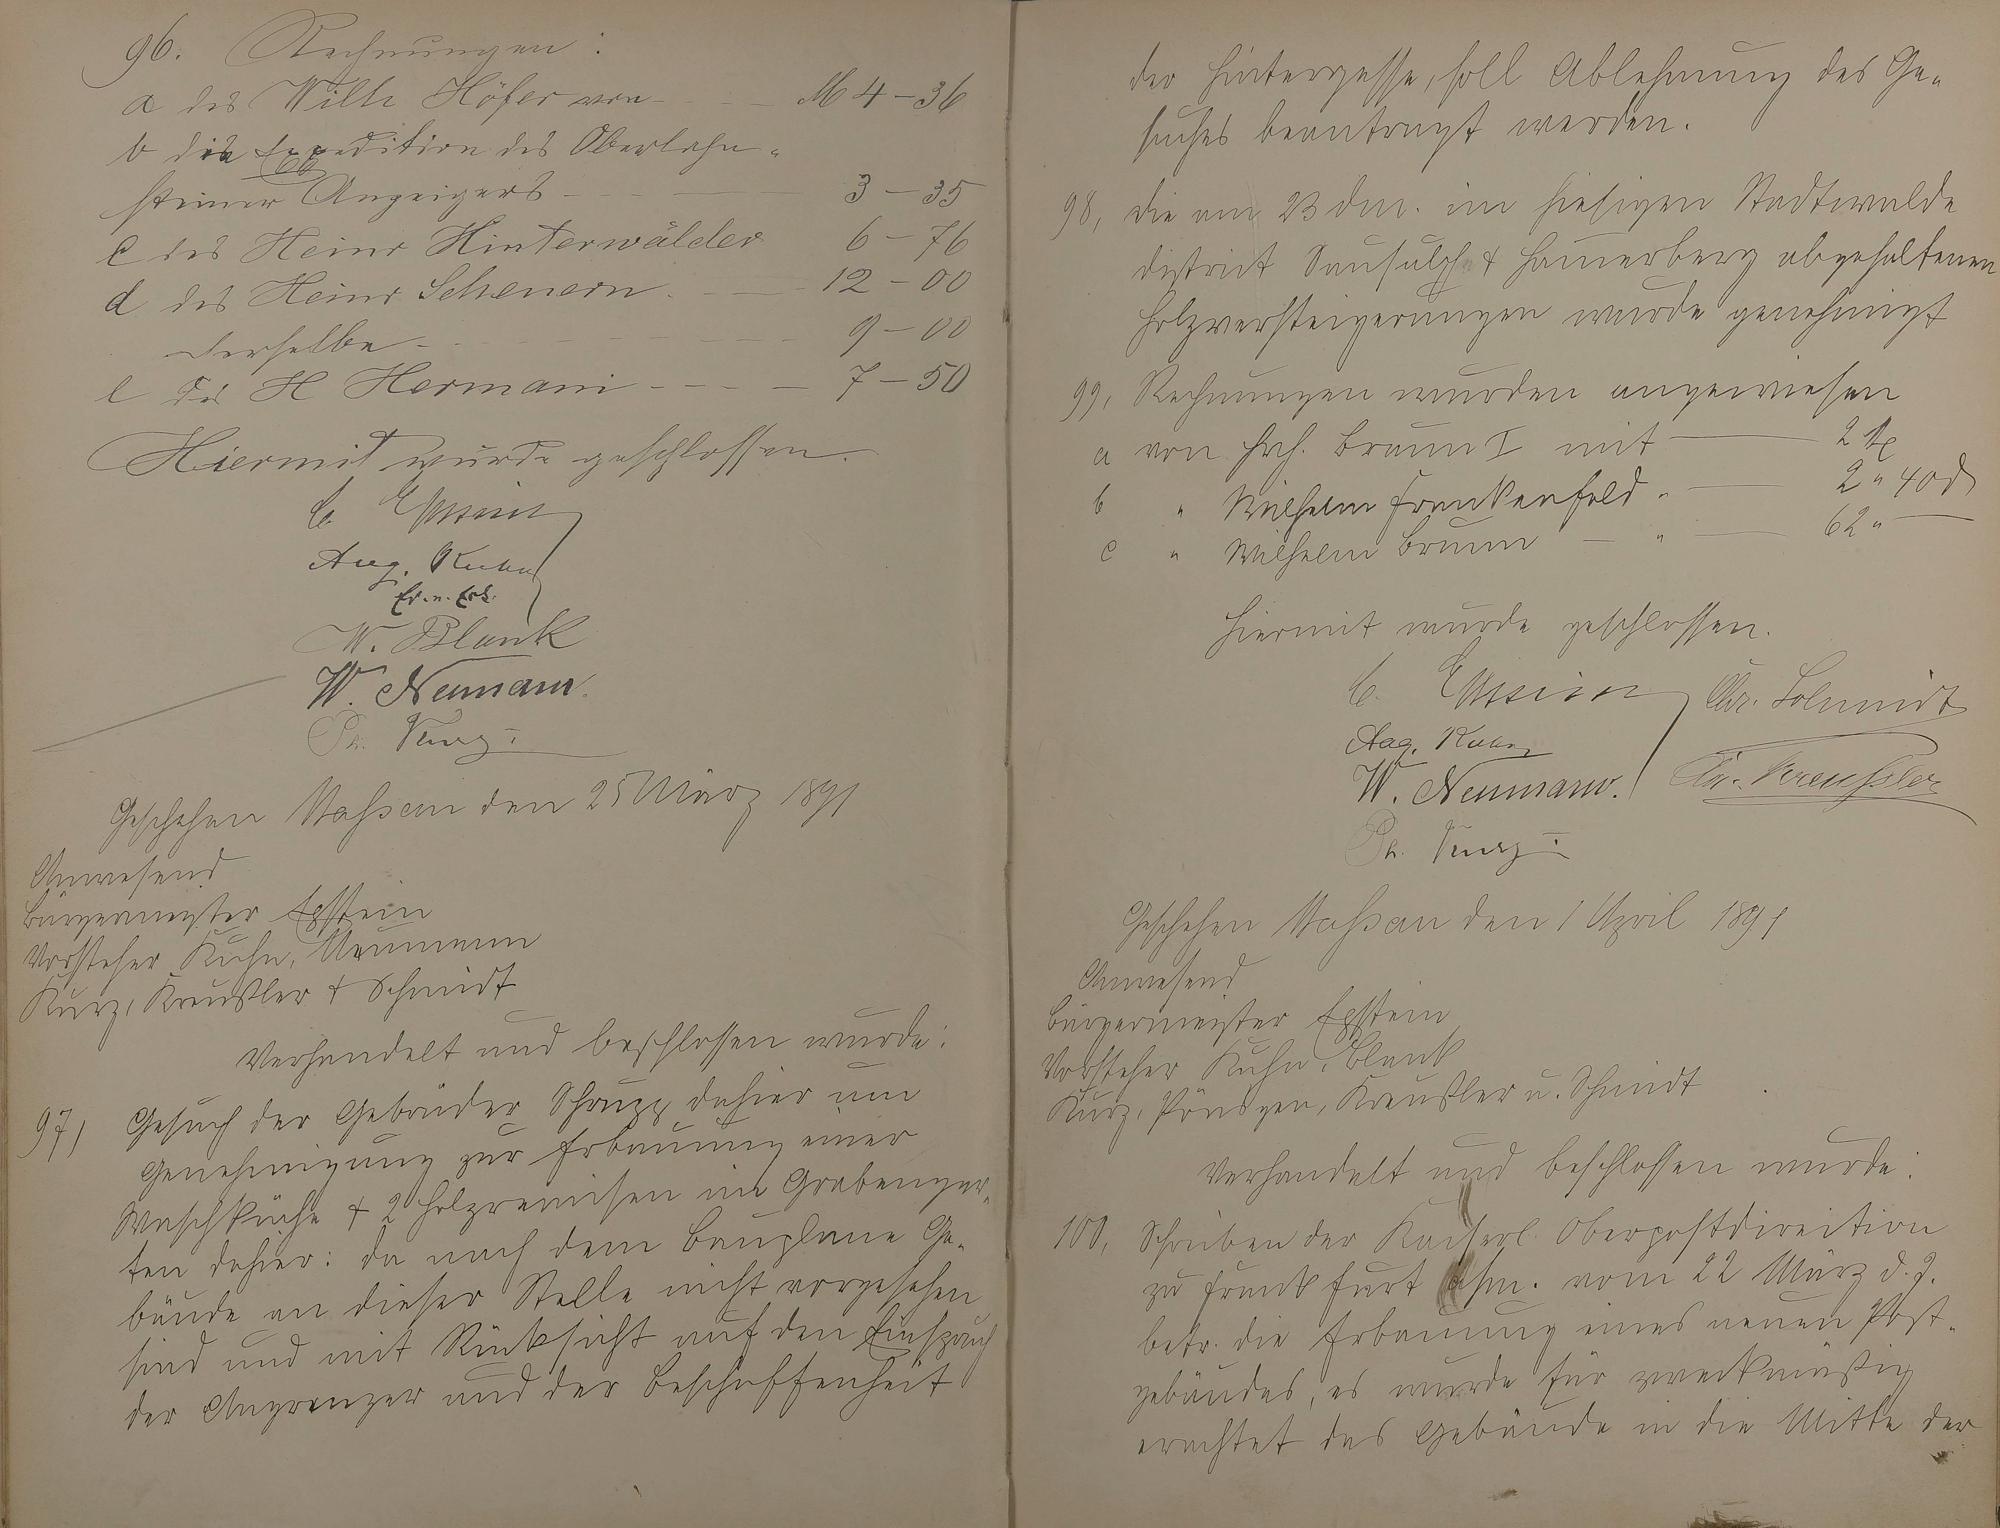 96. Rechnungen:
a des Wilh Höfer von - - - M 4-36
b die Expedition des Oberlahn-
steiner Anzeigers - - - 3-35
c des Heinr Hinterwälder 6-76
d des Heinr Scheuern. - 12-00
derselbe - - - 9-00
e des H Hermani - - - 7-50
Hiermit wurde geschlossen.
C. Epstein
Aug. Kuhn
W. Blank
W. Neumann.
Ph. Kurz:
Geschehen Nassau den 25 März 1891
Anwesend
Bürgermeister Epstein
Vorsteher Kuhn, Neumann
Kurz, Kreußler + Schmidt
Verhandelt und beschlossen wurde:
97, Gesuch der Gebrüder Schrupp dahier um
Genehmigung zur Erbauung einer
Waschküche + 2 Holzremisen im Grabengar-
ten dahier: da nach dem Bauplane Ge-
bäude an dieser Stelle nicht vorgesehen
sind und mit Rücksicht auf den Einspruch
der Angrenzer und der Beschaffenheit
der Hintergasse, soll Ablehnung des Ge-
suches beantragt werden.
98, Die am 23 dM. im hiesigen Stadtwalde
District & Hamerberg abgehaltenen
Holzversteigerungen wurde genehmigt
99, Rechnungen wurden angewiesen
a von Frh. Braun I mit — 2 M
b " Wilhelm Frankenfeld " — 2 " 40 d
c " Wilhelm Braun — " — 62 " —
Hiermit wurde geschlossen.
C. Epstein Chr. Schmidt
Aug. Kuhn
W. Neumann. Chr. Kreußler
Ph. Kurz:
Geschehen Nassau den 1 April 1891
Anwesend
Bürgermeister Epstein
Vorsteher Kuhn, Blank
Kurz, Pönsgen, Kreußler u. Schmidt
Verhandelt und beschlossen wurde:
100, Schreiben der Kaiserl. Oberpostdirection
zu Frankfurt a/m. vom 22 März d. J.
betr. die Erbauung eines neuen Post-
gebäudes, es wurde für zweckmäßig
erachtet das Gebäude in die Mitte der